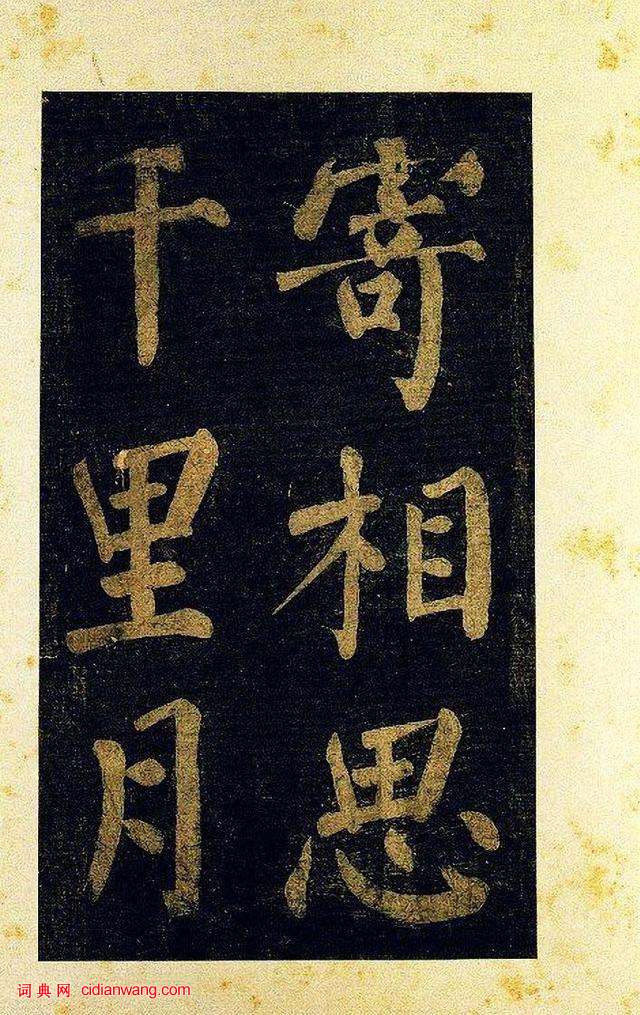 寄相思
千里月
词典网 cidianwang.com